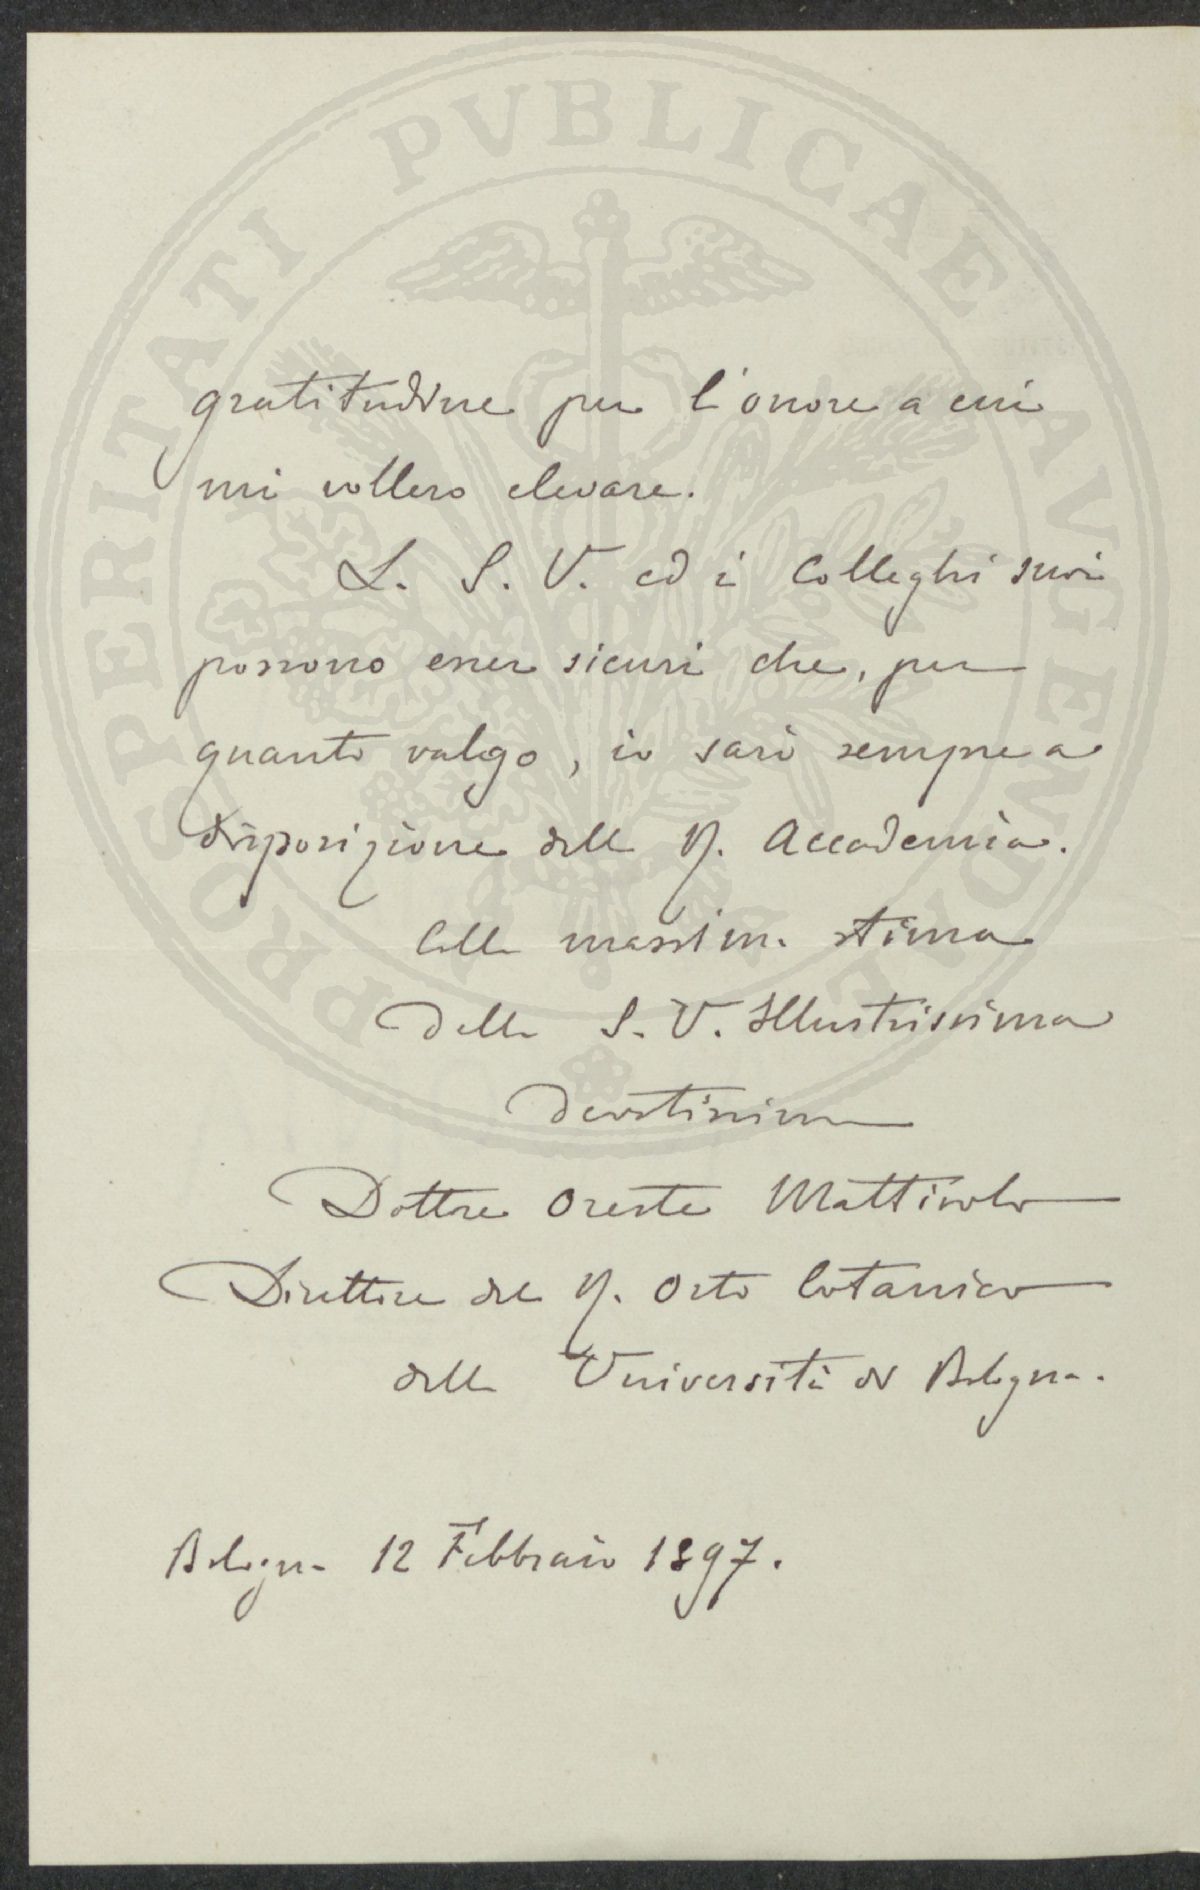 PROSPERITATI PVBLICAE AVGENDAE
gratitudine per l'onore a cui
mi vollero elevare.
La S. V. ed i Colleghi suoi
possono esser sicuri che, per
quanto valgo, io sarò sempre a
disposizione della R. Accademia.
Colla massima stima
della S. V. Illustrissima
devotissimo
Dottore Oreste Mattirolo
Direttore del R. Orto botanico
della Università di Bologna.
Bologna 12 Febbraio 1897.